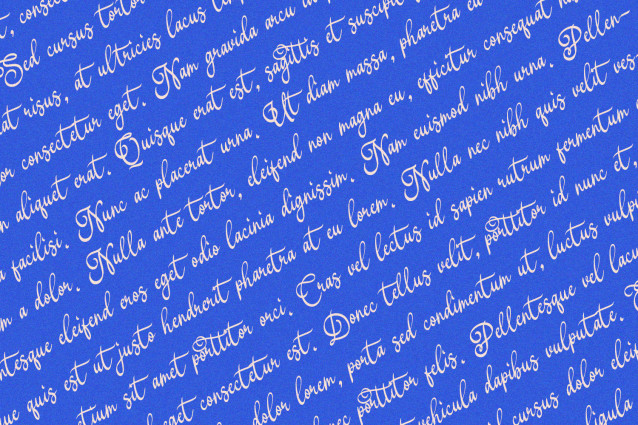 consec
Sed cursus tortor
risus, at ultricies lacus
consectetur eget. Nam gravida arcu
aliquet erat. Quisque erat est, sagittis et suscipit
facilisi. Nunc ac placerat urna. Ut diam massa, pharetra eu
a dolor. Nulla ante tortor, eleifend non magna eu, efficitur consequat
ntesque eleifend eros eget odio lacinia dignissim. Nam euismod nibh urna. Pellen-
ue quis est ut justo hendrerit pharetra at eu lorem. Nulla nec nibh quis velit ves-
tium sit amet porttitor orci. Cras vel lectus id sapien rutrum fermentum
eget consectetur est. Donec tellus velit, porttitor id nunc et
dolor lorem, porta sed condimentum ut, luctus vulpu
nec porttitor felis. Pellentesque vel lacu
vehicula dapibus vulputate.
cursus dolor eleif
ligula